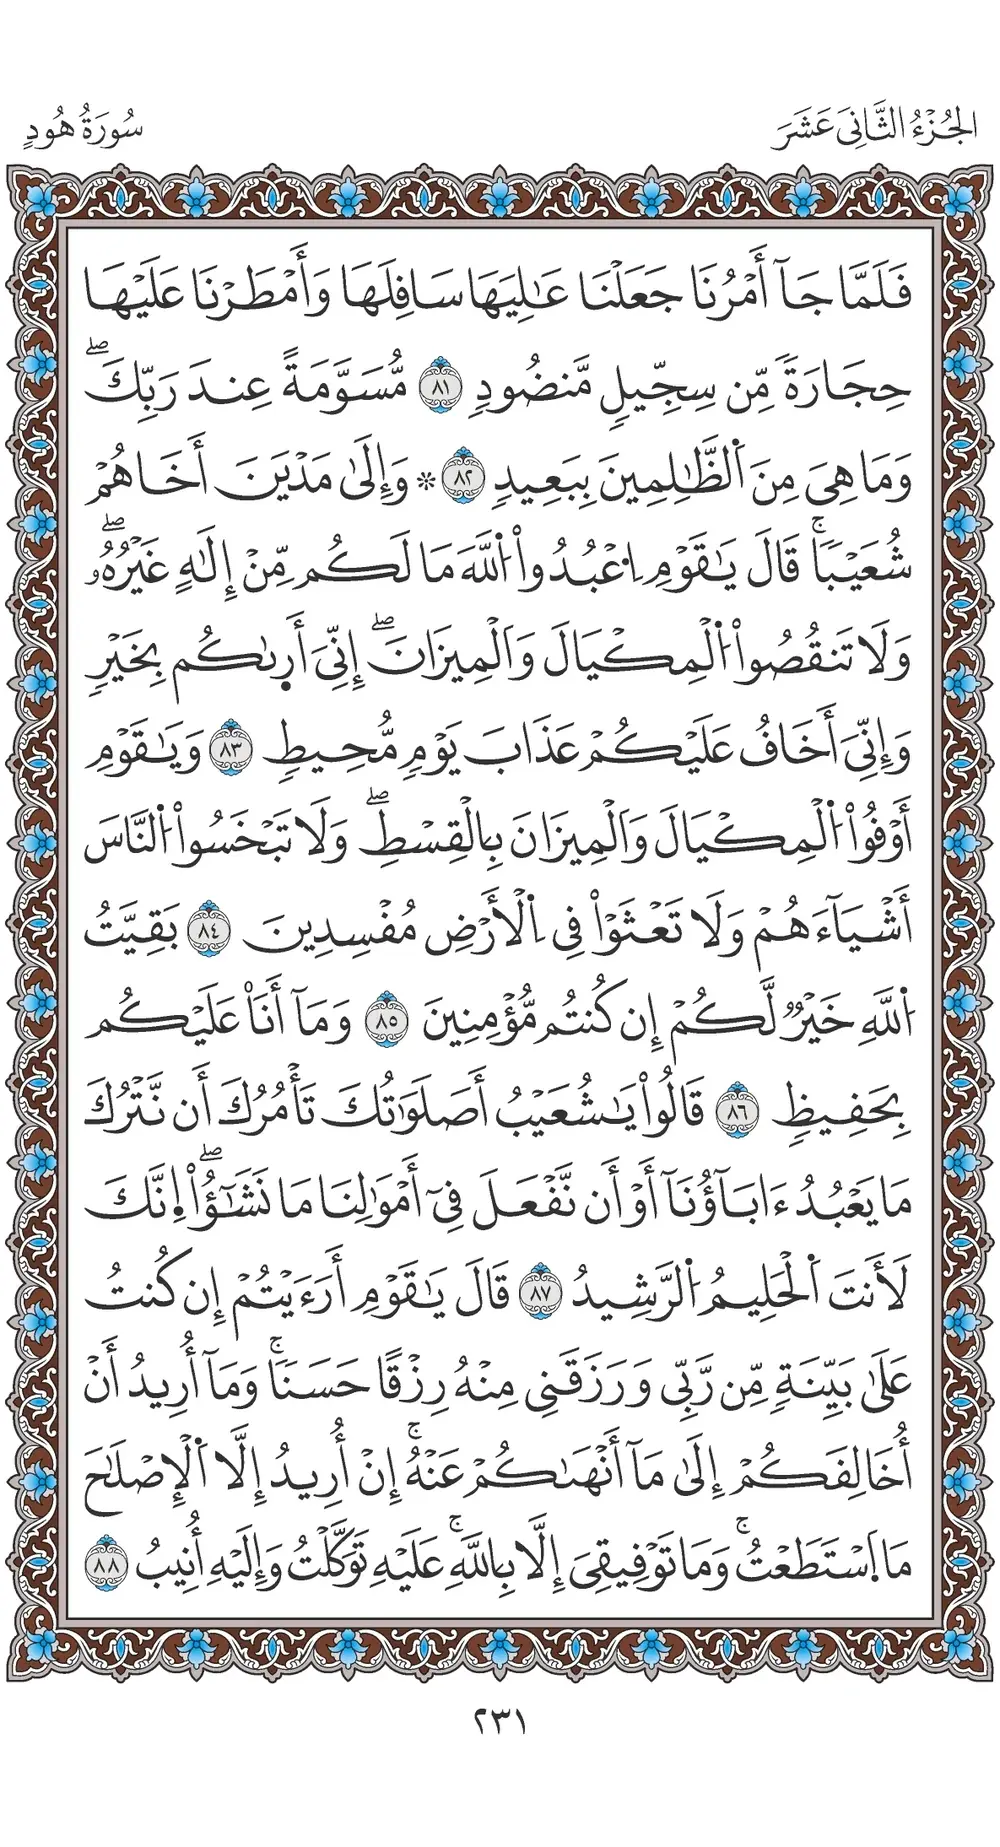 الجُزْءُ الثَّانِىَ عَشَرَ
سُورَةُ هُودٍ
فَلَمَّا جَآ أَمْرُنَا جَعَلْنَا عَٰلِيَهَا سَافِلَهَا وَأَمْطَرْنَا عَلَيْهَا
حِجَارَةً مِّن سِجِّيلٍ مَّنضُودٍ ٨١ مُّسَوَّمَةً عِندَ رَبِّكَۖ
وَمَا هِىَ مِنَ اَ۬لظَّٰلِمِينَ بِبَعِيدٍ ٨٢ ۞ وَإِلَىٰ مَدْيَنَ أَخَاهُمْ
شُعَيْبًاۚ قَالَ يَٰقَوْمِ اِ۟عْبُدُواْ اُ۬للَّهَ مَا لَكُم مِّنْ إِلَٰهٍ غَيْرُهُۥۖ
وَلَا تَنقُصُواْ اُ۬لْمِكْيَالَ وَالْمِيزَانَۖ إِنِّىَ أَر۪ىٰكُم بِخَيْرٍ
وَإِنِّىَ أَخَافُ عَلَيْكُمْ عَذَابَ يَوْمٍ مُّحِيطٍ ٨٣ وَيَٰقَوْمِ
أَوْفُواْ اُ۬لْمِكْيَالَ وَالْمِيزَانَ بِالْقِسْطِۖ وَلَا تَبْخَسُواْ اُ۬لنَّاسَ
أَشْيَآءَهُمْ وَلَا تَعْثَوْاْ فِى اِ۬لْأَرْضِ مُفْسِدِينَ ٨٤ بَقِيَّتُ
اُ۬للَّهِ خَيْرٌ لَّكُمْ إِن كُنتُم مُّؤْمِنِينَ ٨٥ وَمَآ أَنَا۠ عَلَيْكُم
بِحَفِيظٍ ٨٦ قَالُواْ يَٰشُعَيْبُ أَصَلَوَٰتُكَ تَأْمُرُكَ أَن نَّتْرُكَ
مَا يَعْبُدُ ءَابَآؤُنَآ أَوْ أَن نَّفْعَلَ فِىٓ أَمْوَٰلِنَا مَا نَشَٰٓؤُاْۖ ا۪نَّكَ
لَأَنتَ اَ۬لْحَلِيمُ اُ۬لرَّشِيدُ ٨٧ قَالَ يَٰقَوْمِ أَرَءَيْتُمْ إِن كُنتُ
عَلَىٰ بَيِّنَةٍ مِّن رَّبِّى وَرَزَقَنِى مِنْهُ رِزْقًا حَسَنًاۚ وَمَآ أُرِيدُ أَنْ
أُخَالِفَكُمْ إِلَىٰ مَآ أَنْهَىٰكُمْ عَنْهُۚ إِنْ أُرِيدُ إِلَّا اَ۬لْإِصْلَٰحَ
مَا اَ۪سْتَطَعْتُۚ وَمَا تَوْفِيقِىَ إِلَّا بِاللَّهِۚ عَلَيْهِ تَوَكَّلْتُ وَإِلَيْهِ أُنِيبُ ٨٨
٢٣١